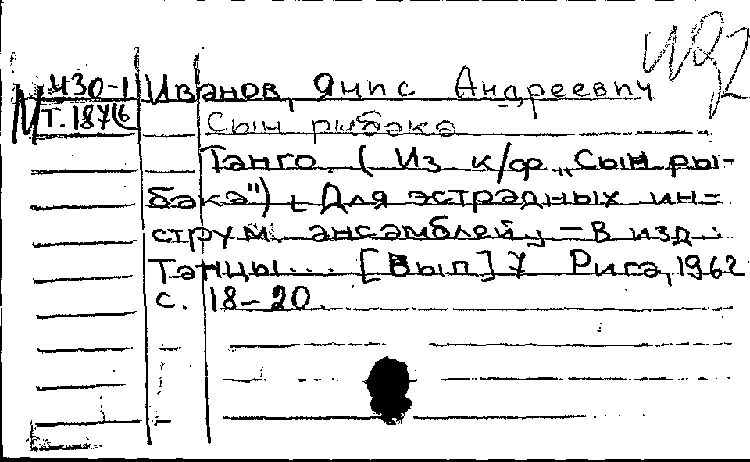 М30-1 Иванов, Янис Андреевич
Т.187/6 Сын рыбака
Танго. (Из к/ф „Сын ры-
бака") [Для эстрадных ин-
струм. ансамблей] – В изд.:
Танцы... [Вып] 7 Рига, 1962
с. 18–20.